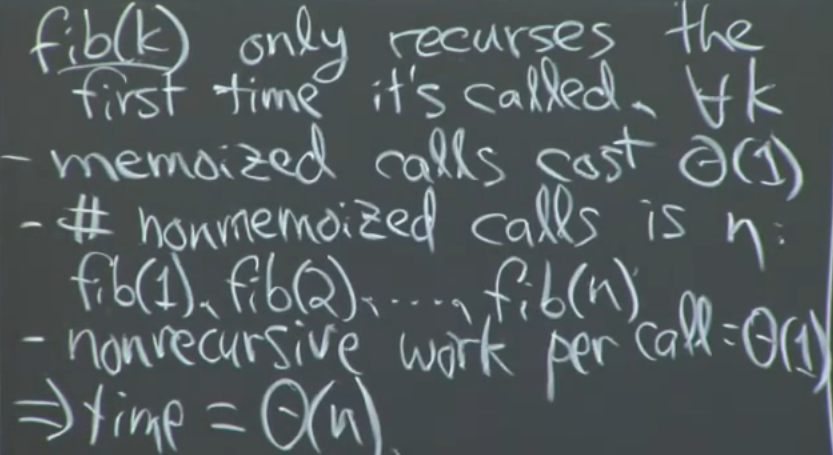 fib(k) only recurses the
first time it's called, ∀k
- memoized calls cost Θ(1)
- # nonmemoized calls is n:
fib(1), fib(2), ...., fib(n)
- nonrecursive work per call = Θ(1)
⇒ time = Θ(n).